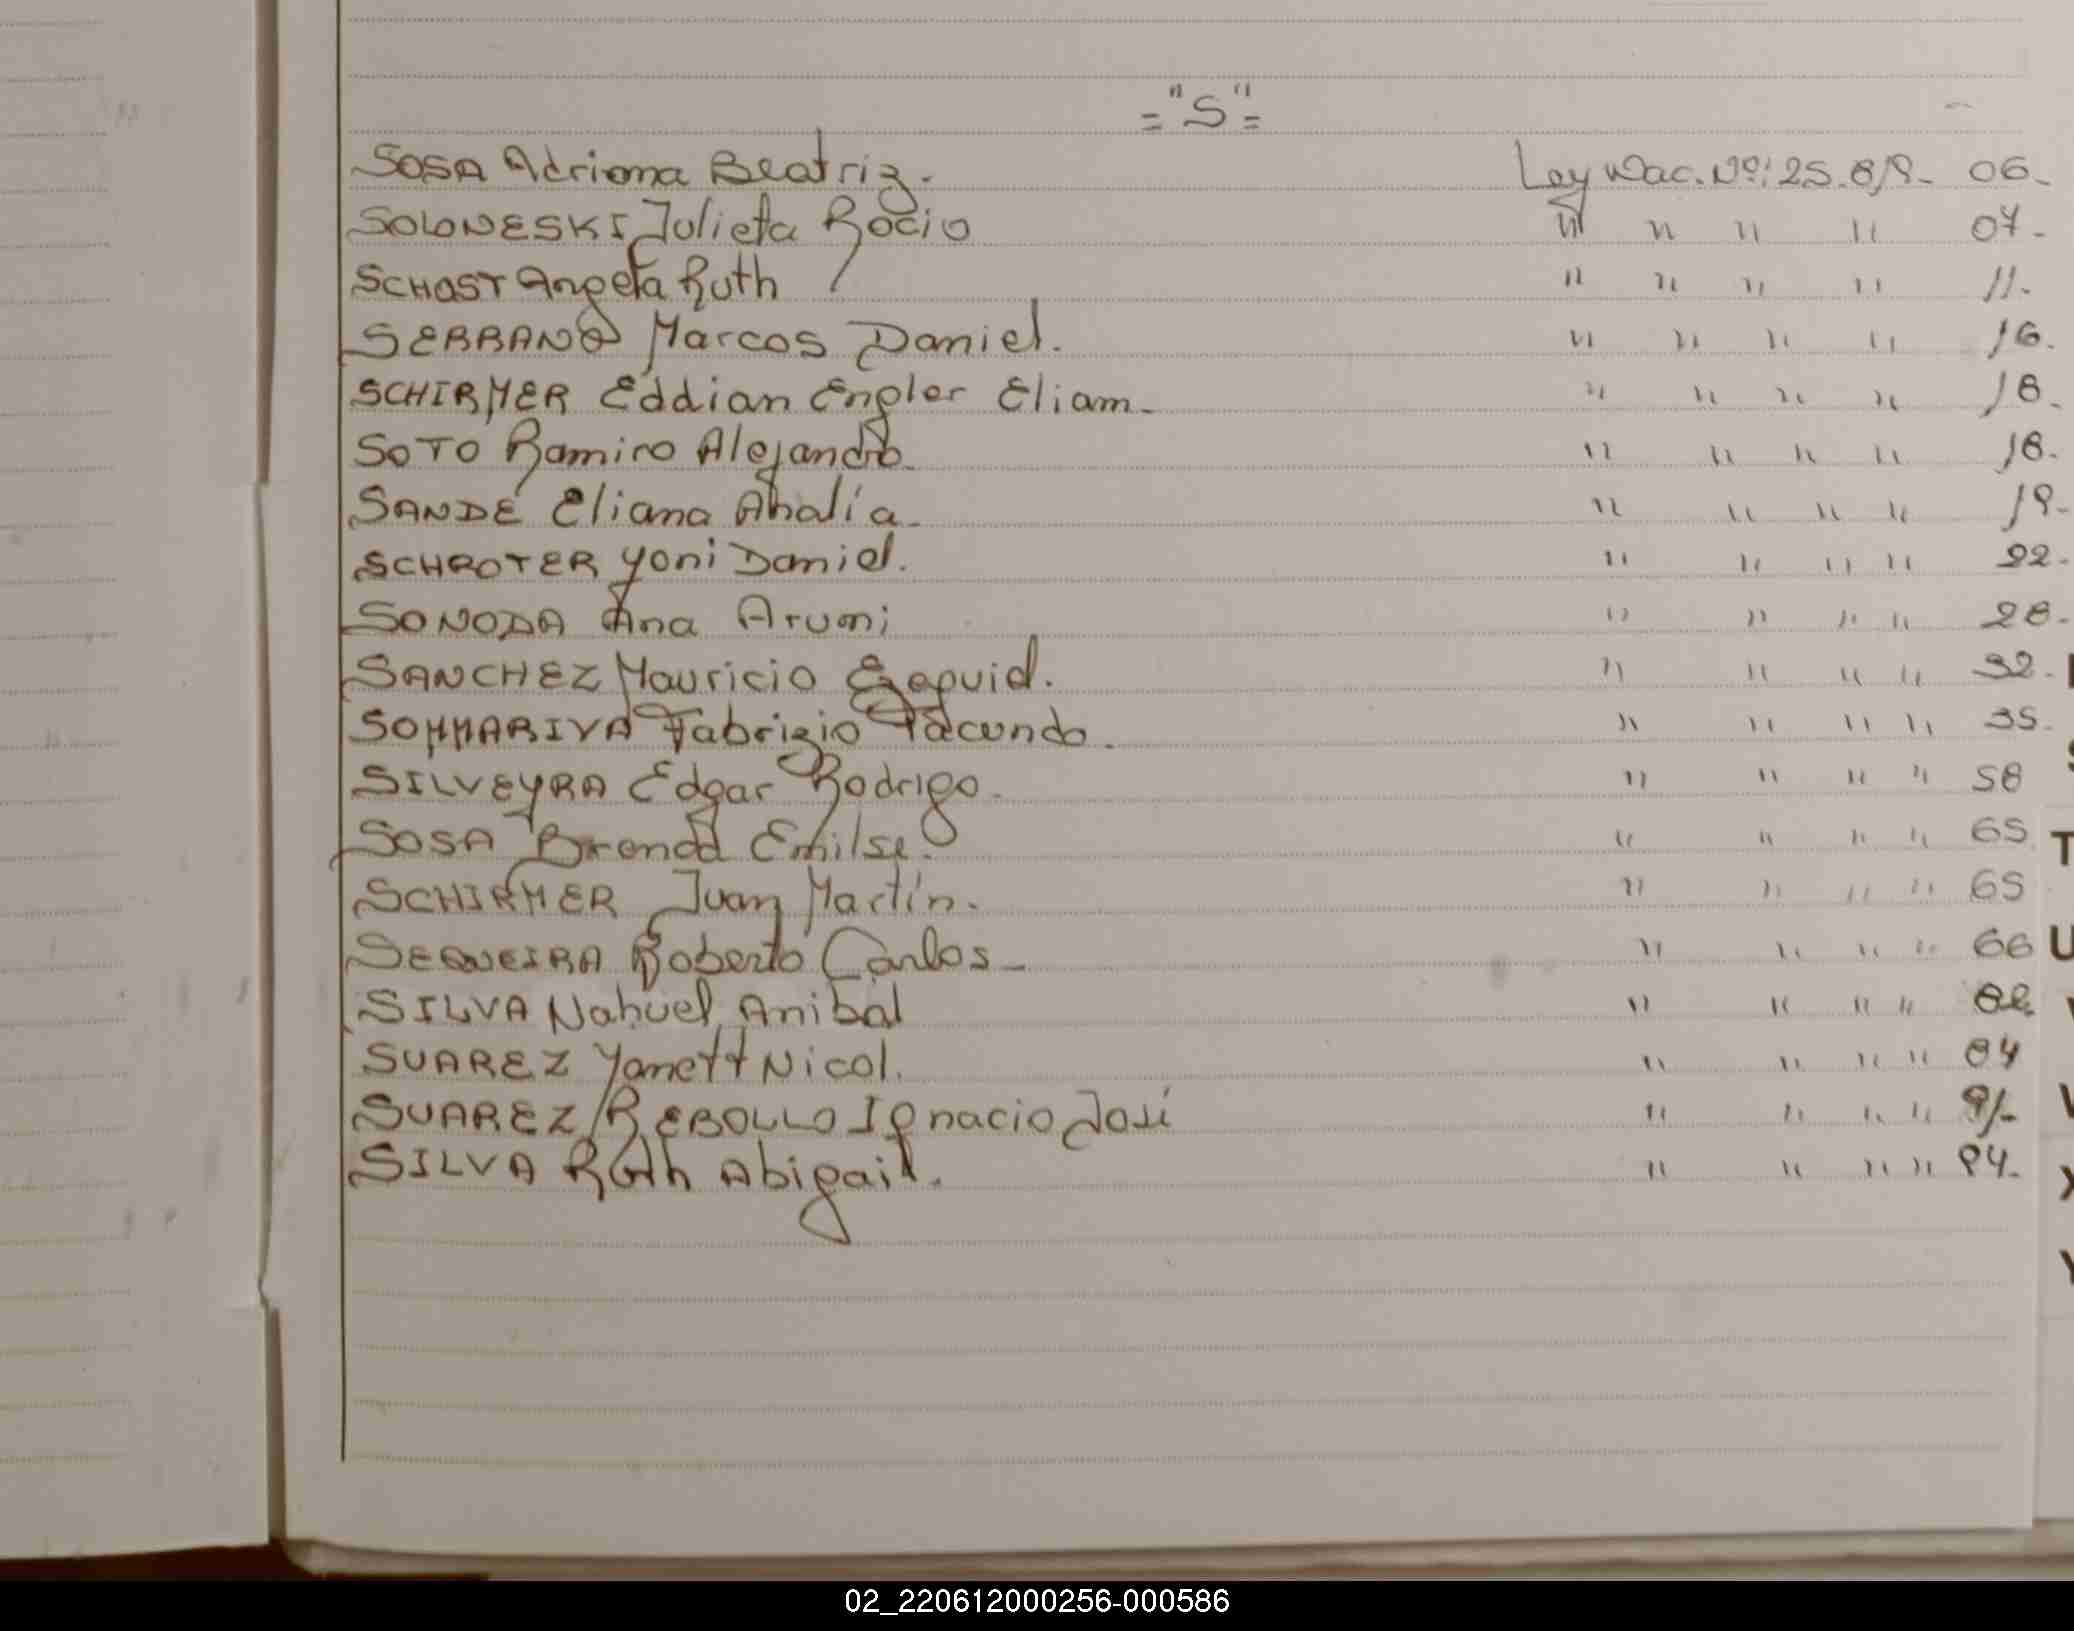 ="S"=
SOSA Adriana Beatriz. Ley Nac. Nº: 25.819- 06-
SOLONESKI Julieta Rocio " " " " 07-
SCHOST Angela Ruth " " " " 11-
SERRANO Marcos Daniel. " " " " 16.
SCHIRMER Eddian Engler Eliam- " " " " 18-
SOTO Ramiro Alejandro. " " " " 18-
SANDE Eliana Analía- " " " " 19-
SCHROTER Yoni Daniel. " " " " 22-
SONODA Ana Arumi " " " " 28-
SANCHEZ Mauricio Ezequiel. " " " " 32-
SOMMARIVA Fabrizio Facundo. " " " " 35-
SILVEYRA Edgar Rodrigo- " " " " 58
SOSA Brenda Emilse. " " " " 65
SCHIRMER Juan Martín. " " " " 65
SEQUEIRA Roberto Carlos- " " " " 66
SILVA Nahuel Anibal " " " " 82
SUAREZ Yanett Nicol. " " " " 84
SUAREZ REBOLLO Ignacio José " " " " 91-
SILVA Ruth Abigail. " " " " 94-
T
U
V
W
X
Y
02_220612000256-000586